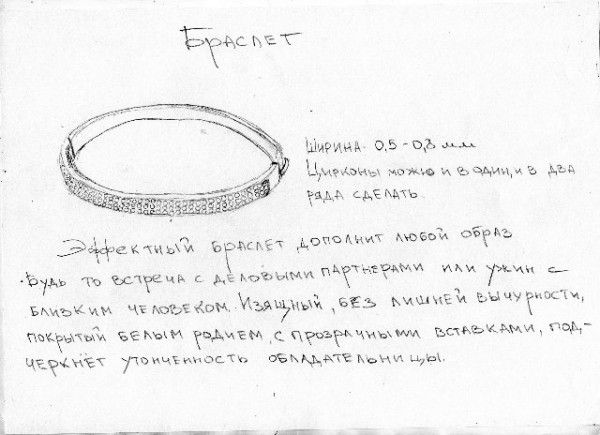 Браслет
Ширина 0,5-0,8 мм
Цирконы можно и в один, и в два
ряда сделать.
Эффектный браслет, дополнит любой образ
Будь то встреча с деловыми партнерами или ужин с
близким человеком. Изящный, без лишней вычурности,
покрытый белым родием, с прозрачными вставками, под-
черкнёт утонченность обладательницы.